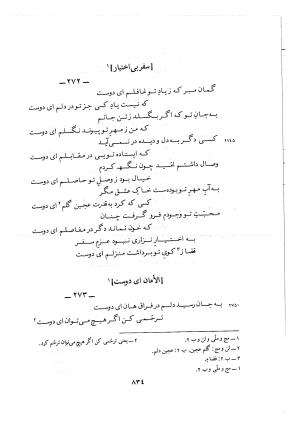 [سفر بی اختیار]۱
— ۲۷۲ —
گمان مبر که ز یاد تو غافلم ای دوست
که نیست یاد کسی جز تو در دلم ای دوست
به جان تو که اگر بگسلد ز تن جانم
که من ز مهر تو پیوند نگسلم ای دوست
۲۷۴۵ کسی دگر به دل و دیده در نمی‌آید
که ایستاده تویی در مقابلم ای دوست
وصال داشتم امّید چون نگهـ کردم
خیال بود ز وصل تو حاصلم ای دوست
به آب مهر تو بوده‌ست خاک عشق مگر
کسی که کرد به قدرت عجین گلم۲ ای دوست
محبّتت تو وجودم فرو گرفت چنان
که خون نماند دگر در مفاصلم ای دوست
به اختیار نزاری نبود عزم سفر
قضا ز۳ کوی تو برداشت منزلم ای دوست
[الأمان ای دوست]۱
— ۲۷۳ —
۲۷۵۰ به جان رسید دلم در فراق هان ای دوست
ترحّمی کن اگر هیچ می‌توان ای دوست۲
۱ــ مج و ملی و لن و ب ۲.
۲ــ لن و مج: گلم عجین. ب ۲: عجین دلم.
۳ــ ب ۲: قضاء.
۱ــ مج و ملی و ب ۲.
۲ــ یعنی ترحّمی کن اگر هیچ می‌توان ترحّم کرد.
۸۳۴